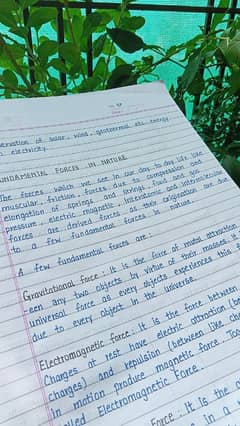 servation of solar, wind, geothermal etc energy
electricity.
UNDAMENTAL FORCES IN NATURE
The forces which we see in our day to day life like
muscular, friction, forces due to compression and
elongation of springs and strings, fluid and gas
pressure, electric, magnetic, interatomic and intermolecular
forces are derived forces as their origination are due
to a few fundamental forces in nature.
A few fundamental forces are :
Gravitational force : It is the force of mutual attraction
-een any two objects by virtue of their masses. It
universal force as every objects experiences this
due to every object in the universe.
Electromagnetic force : It is the force between
Charges at rest have electric attraction (be
charges) and repulsion (between like char
in motion produce magnetic force. Toge
lled Electromagnetic Force.
Force : It is the
s in a